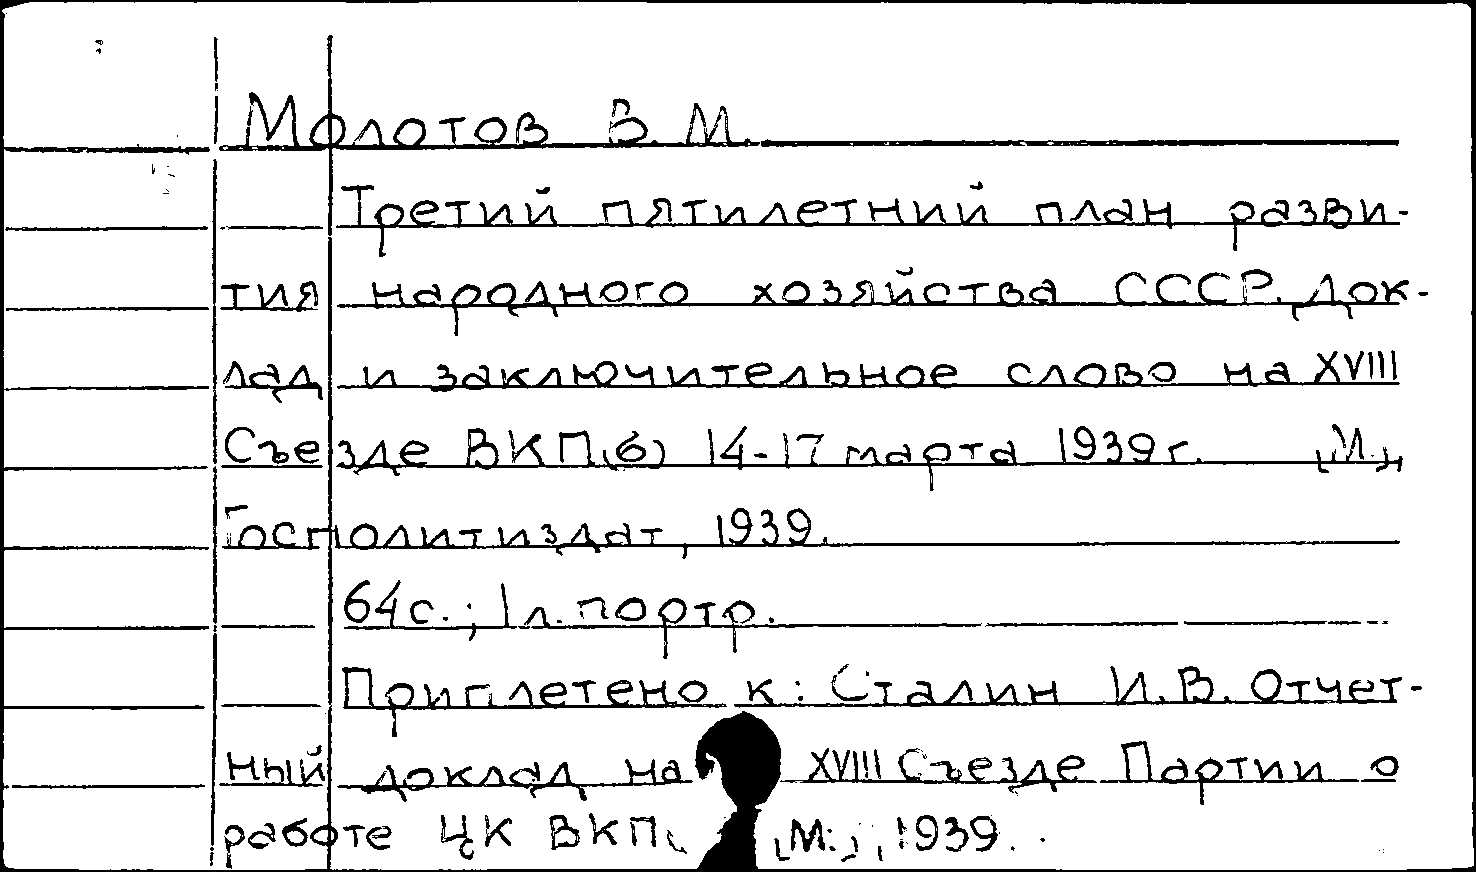 Молотов В. М.
Третий пятилетний план разви-
тия народного хозяйства СССР. Док-
лад и заключительное слово на XVIII
Съезде ВКП(б) 14-17 марта 1939 г. [М.],
Госполитиздат, 1939.
64 с.; 1 л. портр.
Приплетено к: Сталин И. В. Отчет-
ный доклад на XVIII Съезде Партии о
работе ЦК ВКП( [М.], 1939.